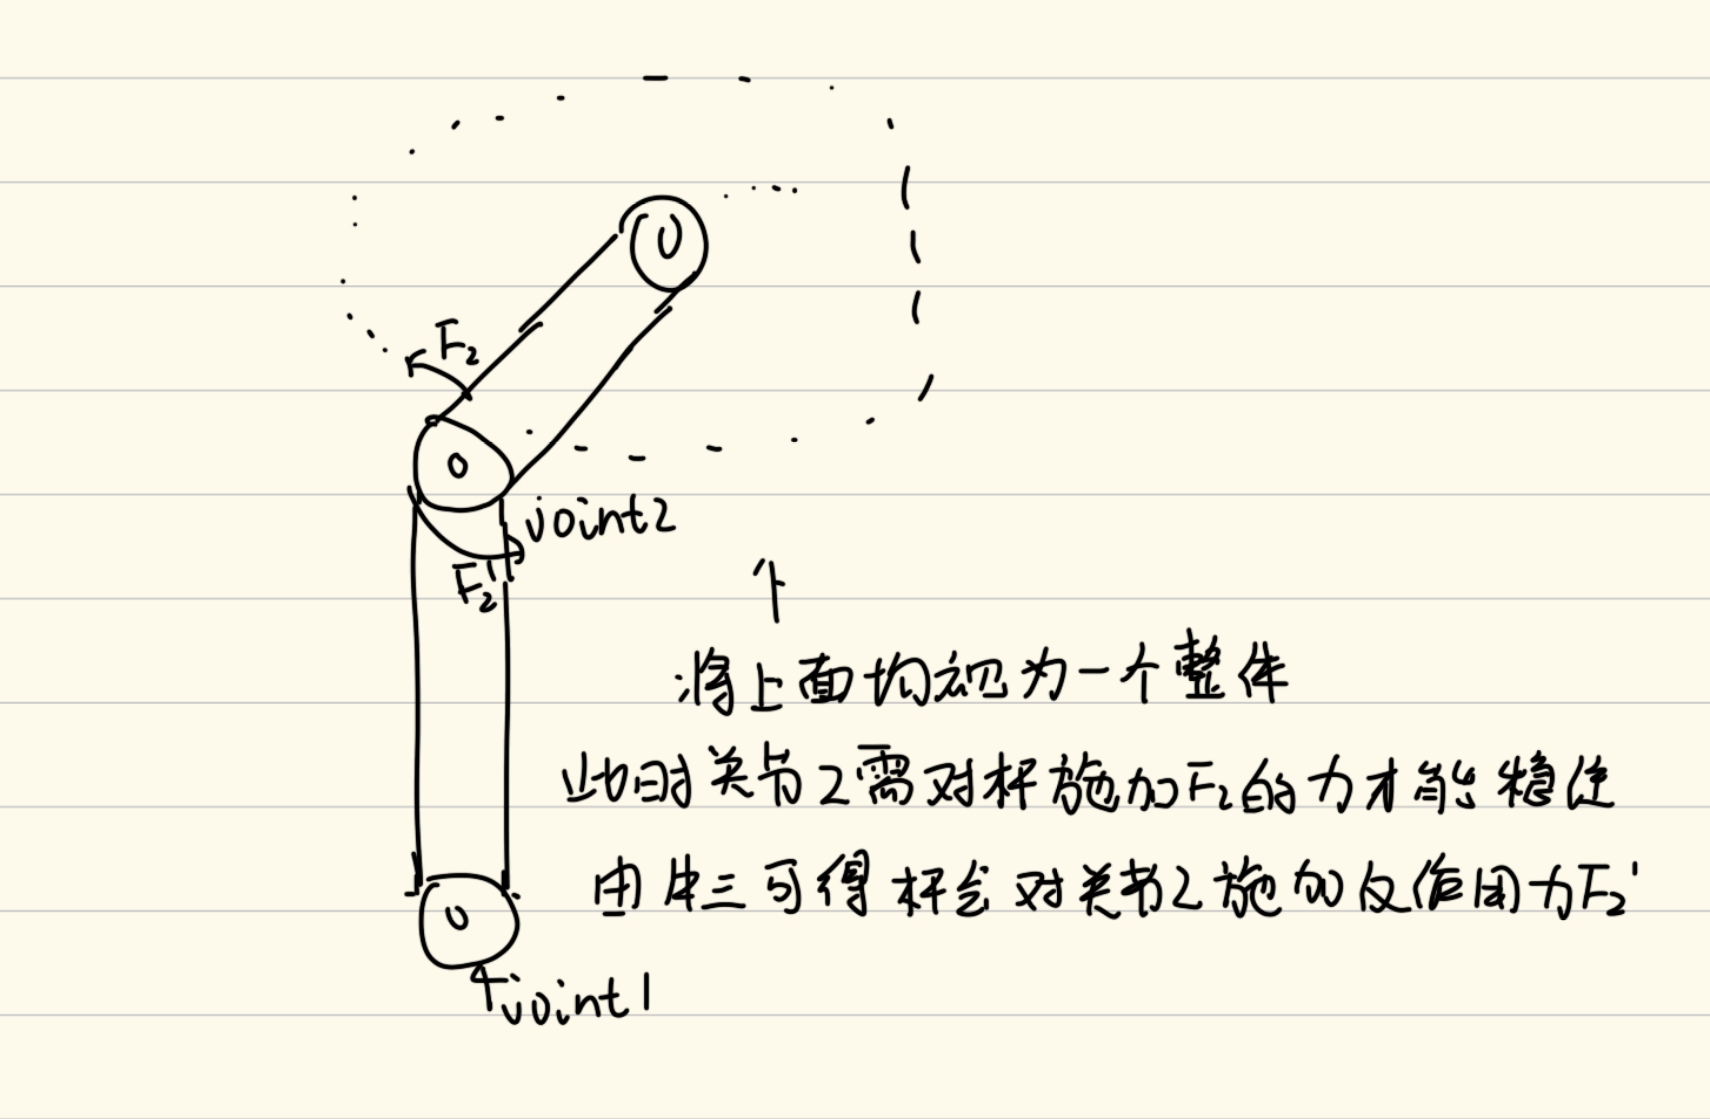 F₂
joint2
F₂'
将上面均视为一个整体
此时关节2需对杆施加F₂的力才能稳住
由牛三可得杆会对关节2施加反作用力F₂'
joint1